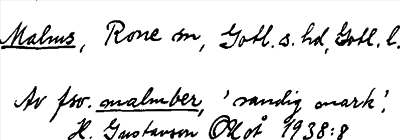 Malms, Rone sn, Gotl. s. hd, Gotl. l.
Av fsv. malmber, 'sandig mark'.
H. Gustavson OGotå 1938:8